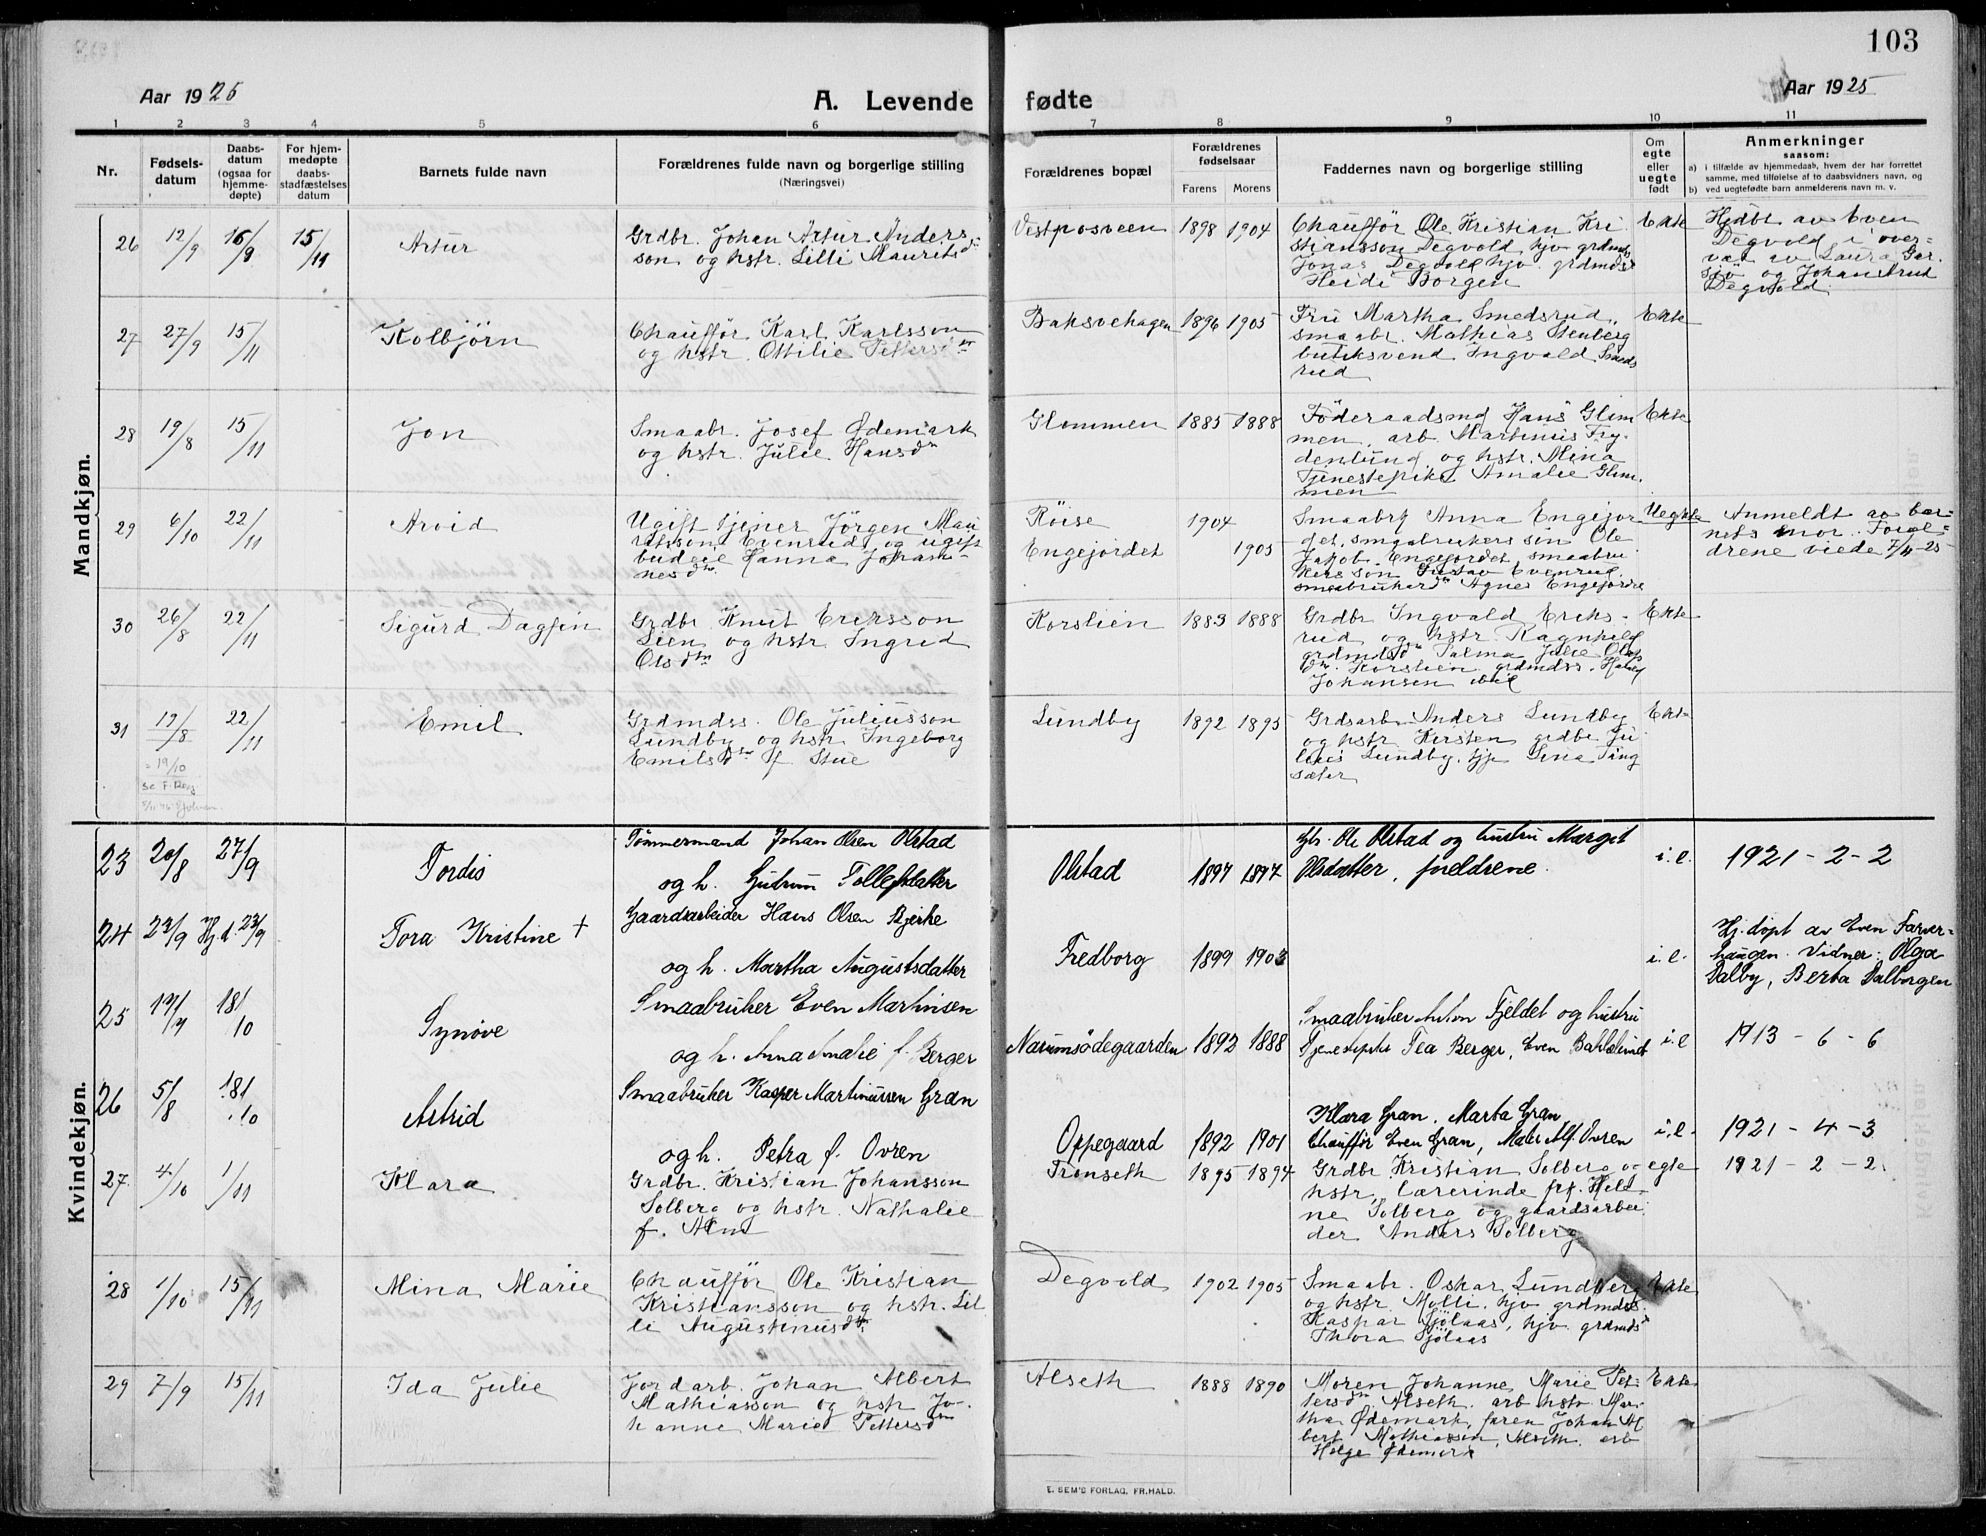 103
Aar 1925
A. Levende
fødte
Aar 1925
1 2 3 4 5 6 7 8 9 10 11
Nr.
Fødsels-
datum
Daabs-
datum
(ogsaa for
hjemme-
døpte)
For hjem-
medøpte
daabs-
stadfæstelses
datum
Barnets fulde navn
Forældrenes fulde navn og borgerlige stilling
(Næringsvei)
Forældrenes bopæl
Forældrenes
fødselsaar
Farens Morens
Faddernes navn og borgerlige stilling
Om
egte
eller
uegte
født
Anmerkninger
saasom:
a) i tilfælde av hjemmedaab, hvem der har forrettet
samme, med tilføielse af to daabsvidners navn, og
b) ved uegtefødte barn anmelderens navn m. v.
Mandkjøn.
26 12/9 16/9 15/11 Artur
Grdbr. Johan Artur Anders-
son og hstr. Lilli Mauritsdr
Vestposveen 1898 1904
Chauffør Ole Kristian Kri
stiansson Degvold hjv. grdmds
Jonas Degvold hjv. grdmdsd
Heidi Borgen
Ekte
Hjdbt av Even
Degvold i over-
vær av Laura Gar
sjø og Johan
Degvold.
27 27/9 15/11 Kolbjörn
Chauffør Karl Karlsson
og hstr. Ottilie Pettersdtr
Baksvehagen 1896 1905
Fru Martha Smedsrud,
smaabr. Mathias Stenberg
butiksvend Ingvald Smeds
rud
Ekte
28 19/8 15/11 Jon
Smaabr. Josef Ødemark
og hstr. Julie Hansdtr
Glommen 1885 1888
Föderaadsmd Hans Glim
men, arb. Martinius Fry-
denlund og hstr. Mina
Tjenestepike Amalie Glim
men
Ekte
29 6/10 22/11 Arvid
Ugift tjener Jörgen Mau
ritsson Evenrud og ugift
budeie Hanna Johan-
nesdtr
Röise 1904
Engejordet 1905
Smaabrk Anna Engejor
det, smaabrukers sön Ole
Jakob Engejordet smaabru
kers sön Gustav Evenrud
smaabrukerdtr Agnes Engejordet
Uegte
Anmeldt av bar-
nets mor. Foræl-
drene viede 7/11-25
30 26/8 22/11 Sigurd Dagfin
Grdbr. Knut Eriksson
Lien og hstr. Ingrid
Olsdtr
Korslien 1883 1888
Grdbr Ingvald Eriks-
rud og hstr. Ragnhild
grdmdsdtr Palma Julie Ols
dtr. Korslien grdmdss. Harald
Johansen ibid
Ekte
31 19/8 22/11 Emil
= 19/10
Grdmdss. Ole Juliusson
Lundby og hstr. Ingeborg
Emilsdtr f. Stue
Lundby 1892 1895
Grdsarb. Anders Lundby
og hstr Kirsten grdbr. Ju
lius Lundby, tjp Lina Ting
sæter
Ekte
Kvindekjøn.
23 20/8 27/9 Tordis
Tömmermand Johan Olsen Olstad
og h. Gutrum Tollefsdatter
Olstad 1897 1897
Gb. Ole Olstad og hustru Marget
Olsdatter, foreldrene.
i.e. 1921 - 2 - 2
24 22/9 Hj.d 23/9 Tora Kristine +
Gaardsarbeider Hans Olsen Bjerke
og h. Martha Augustsdatter
Fredborg 1899 1903
i.e.
Hj. döpt av Even Farver-
haugen. Vidner: Olga
Dalby, Berta Dalborgen
25 17/7 18/10 Synöve
Smaabruker Even Martinsen
og h. Anna Amalie f. Berger
Narumsödegaarden 1892 1888
Smaabruker Anton Fjeldet og hustru
Tjenestepike Tea Berger, Even Bakkelund
i.e 1913 - 6 - 6
26 5/8 18/10 Astrid
Smaabruker Kasper Martinussen Gran
og h. Petra f. Ovren
Oppegaard 1892 1901
Klara Gran, Marta Gran
Chauffør Even Gran, Maler Alf. Ovren
i.e. 1921 - 4 - 3
27 4/10 1/11 Klara
Grdbr. Kristian Johansson
Solberg og hstr. Nathalie
f. Alm
Tronseth 1895 1894
Grdbr. Kristian Solberg og
hstr. lærerinde frk. Held-
ne Solberg og gaardsarbei
der Anders Solberg
egte 1921 - 2 - 2
28 1/10 15/11 Mina Marie
Chauffør Ole Kristian
Kristiansson og hstr. Lil
li Augustinusdtr
Degvold 1902 1905
Smaabr. Oskar Lundberg
og hstr. Molli, hjv. grdmdss.
Kaspar Sjölaas, hjv. grdmdsd
Thora Sjölaas
Ekte
29 7/9 15/11 Ida Julie
Jordarb. Johan Albert
Mathiasson og hstr Jo-
hanne Marie Pettersdtr
Alseth 1888 1890
Moren Johanne Marie Pet
tersdtr Alseth. arb. hstr. Mar-
tha Ødemark, faren Johan Al
bert Mathiassen, Alseth, arb
Helge Ødemark
Ekte
E. SEM'S FORLAG, FR.HALD.